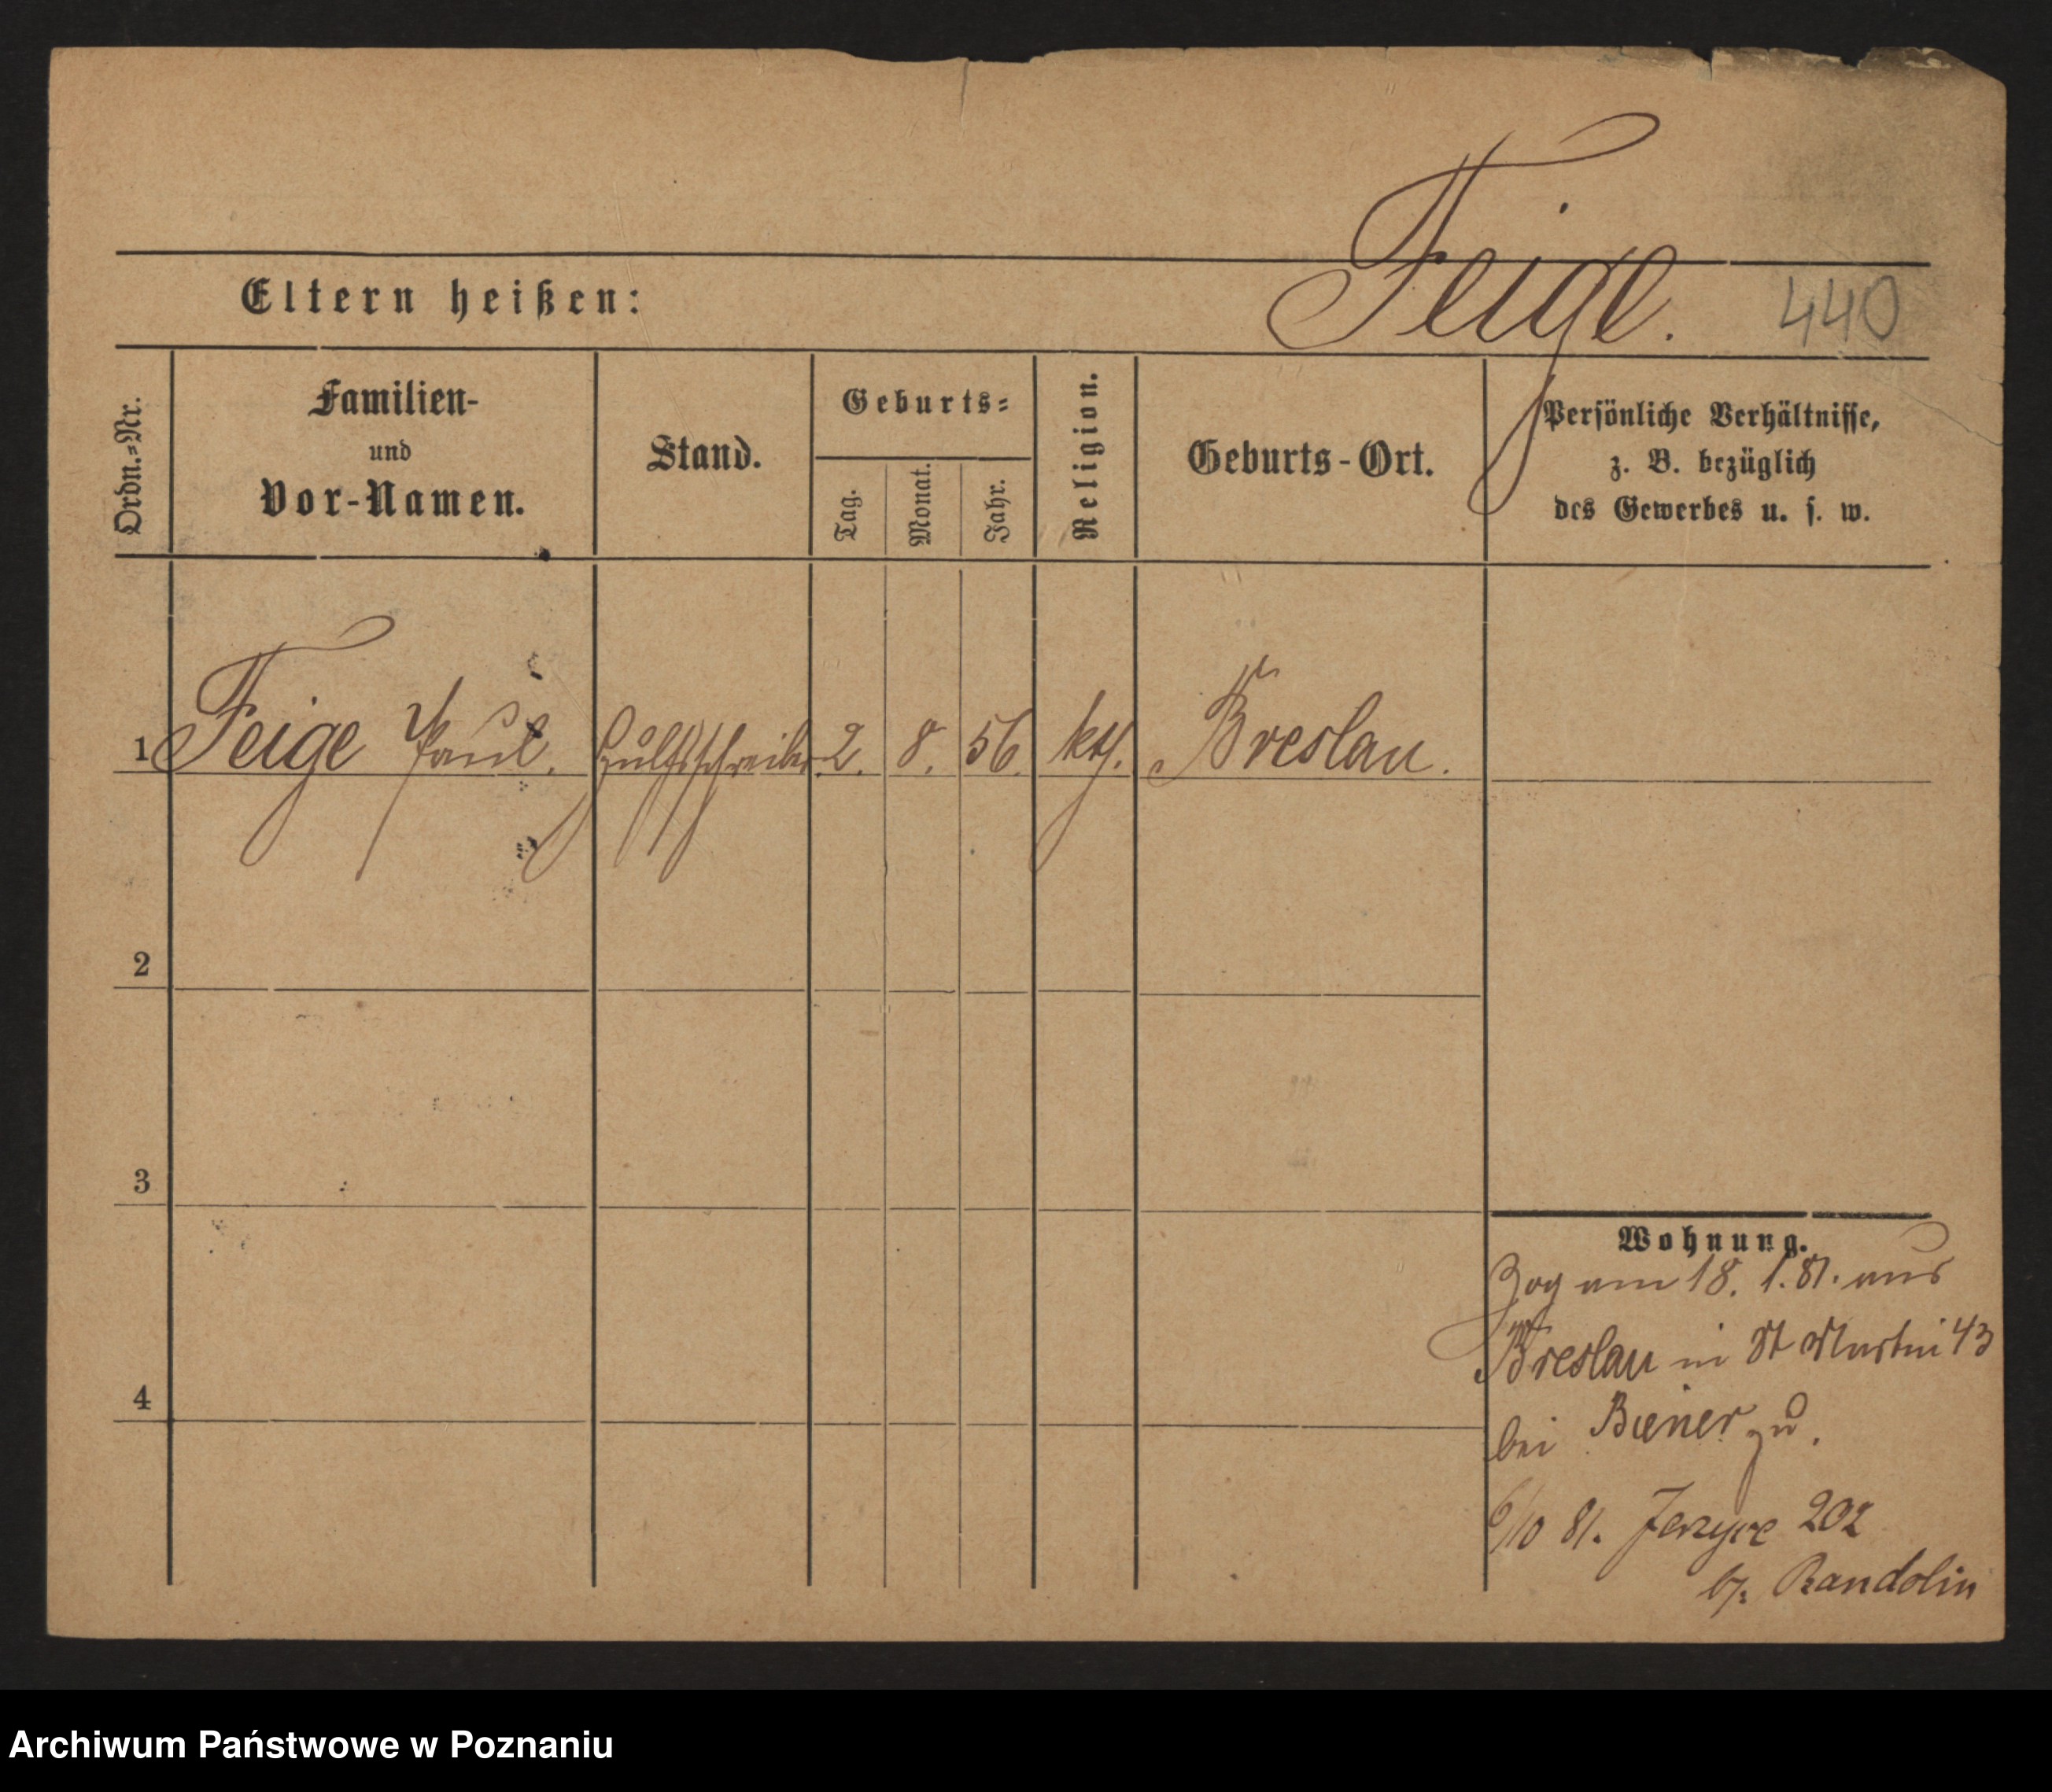 Feige.
440
Eltern heißen:
Ordn.-Nr.
Familien-
und
Vor-Namen.
Stand.
Geburts-
Tag.
Monat.
Jahr.
Religion.
Geburts-Ort.
Persönliche Verhältnisse,
z. B. bezüglich
des Gewerbes u. s. w.
1 Feige Paul. Hülfsschreiber 2. 8. 56. kth. Breslau.
2
3
4
Wohnung.
Zog am 18. 1. 81. aus
Breslau in St Martin 43
bei Biener zu.
6/10 81. Jerzyce 202
b/: Randolin
Archiwum Państwowe w Poznaniu